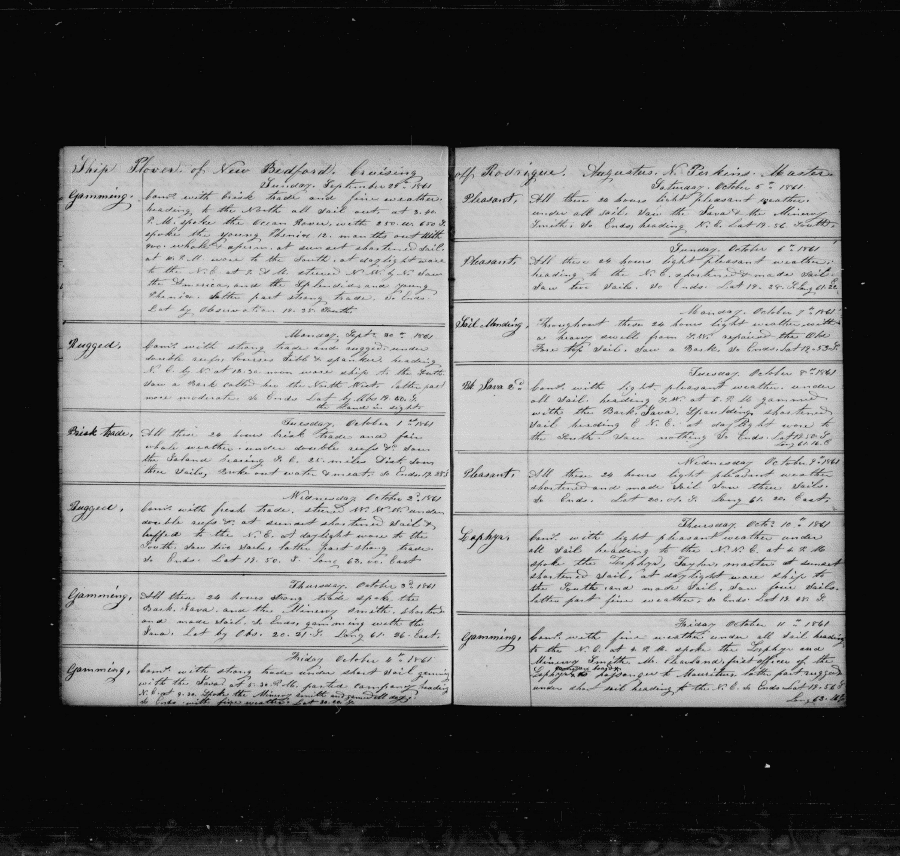 Ship Plover of New Bedford. Cruising
Sunday. September 29th 1861
Gamming, Com. with brisk trade and fine weather.
heading to the North all sail out. at 3.40
P. M. spoke the Ocean Rover, with 250.
spoke the young Phenix 12. months out with
at sunset shortened sail.
at P.M. wore to the South. at daylight wore
to the N.E. at A M steered N.W. by N. saw
the America and the Splendid and young
Phenix. latter part strong trade. So Ends.
Lat by Observation 19.35 South.
Monday. Sept. 30th 1861
Rugged. Com. with strong trade and rugged under
double reefs, courses Jibb & spanker heading
N. E. by N at 12.30 noon wore ship to the South
Saw a Bark latter part
more moderate So Ends Lat by Obs 19.40. S.
the Island in sight
Tuesday. October 1st 1861
Brisk trade, All these 24 hours brisk trade and fair
whale weather. under double reefs &c saw
the Island bearing S.E. 25. miles Dist. Saw
three Sails, Broke out water & meat. So Ends.
Wednesday October 2d 1861
Rugged, Com. with fresh trade, steered under
double reefs &. at sunset shortened sail &
luffed to the N.E. at daylight wore to the
South. Saw two Sails, latter part strong trade
So Ends. Lat 19. 50. S. Long 63. 00. East
Thursday. October 3d 1861
Gamming, All these 24 hours strong trade spoke the
Bark. Java. and the Minerva Smith, shortened
and made Sail. So Ends, gamming with the
Java. Lat by Obs. 20. 21. S. Long 61. 26. East.
Friday October 4th 1861
Gamming, Com. with strong trade under short Sail gaming
with the Java. at 5.30 P.M. parted company heading
N.E. at 9.30 Spoke the Minerva Smith and gamed all day
So Ends. with fine weather. Lat 20.22. S.
off Rodrigue. Augustus. N. Perkins. Master
Saturday. October 5th 1861
Pleasant, All these 24 hours light pleasant weather.
under all Sail. Saw the Java & the Minerva
Smith, So Ends, heading N. E. Lat 19. 56 South.
Sunday October 6th 1861
Pleasant, All these 24 hours light pleasant weather.
heading to the N. E. shortened & made Sail.
Saw two Sails. So Ends. Lat 19. 28. S. Long 61.
Monday. October 7th 1861
Sail Mending, Throughout these 24 hours light weather, with
a heavy swell from S.W. repaired the Old
Fore top Sail. Saw a Bark. So Ends. Lat 19. 53 S.
Tuesday October 8th 1861
Bk Java 2d Com. with light pleasant weather under
all Sail. heading S.W. at 2. P. M gammed
with the Bark. Java. shortened
Sail heading E N. E. at daylight wore to
the South. Saw nothing So Ends. Lat 19.50. S.
Wednesday October 9th 1861
Pleasant, All these 24 hours light pleasant weather
shortened and made Sail Saw three Sails.
So Ends. Lat 20. 01. S. Long 61. 20. East.
Thursday. Octr. 10th 1861
Zephyr. Com. with light pleasant weather under
all Sail heading to the N. N. E. at 4. P. M
spoke the Zephyr, Taylor master at sunset
shortened Sail, at daylight wore ship to
the South. and made Sail. Saw four Sails.
latter part fine weather. So Ends. Lat 19. 48. S.
Friday October 11th 1861
Gamming, Com. with fine weather under all Sail heading
to the N. E. at 4. P. M. spoke the Zephyr and
Minerva Smith. Mr. first officer of the
Zephyr passenger to Mauritius. latter part rugged
under short sail heading to the N. E. So Ends Lat 19. 56 S.
Long 63.